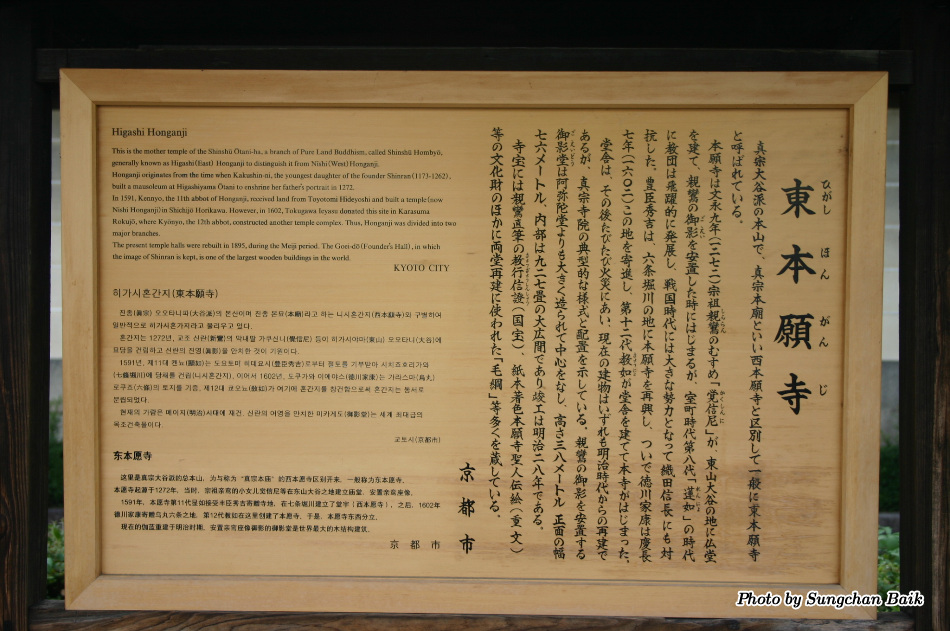 Higashi Honganji
This is the mother temple of the Shinshū Ōtani-ha, a branch of Pure Land Buddhism, called Shinshū Hombyō,
generally known as Higashi(East) Honganji to distinguish it from Nishi(West)Honganji.
Honganji originates from the time when Kakushin-ni, the youngest daughter of the founder Shinran (1173-1262),
built a mausoleum at Higashiyama Ōtani to enshrine her father's portrait in 1272.
In 1591, Kennyo, the 11th abbot of Honganji, received land from Toyotomi Hideyoshi and built a temple(now
Nishi Honganji)in Shichijō Horikawa. However, in 1602, Tokugawa Ieyasu donated this site in Karasuma
Rokujō, where Kyōnyo, the 12th abbot, constructed another temple complex. Thus, Honganji was divided into two
major branches.
The present temple halls were rebuilt in 1895, during the Meiji period. The Goei-dō (Founder's Hall), in which
the image of Shinran is kept, is one of the largest wooden buildings in the world.
KYOTO CITY
히가시혼간지(東本願寺)
진종(眞宗) 오오타니파(大谷派)의 본산이며 진종 본묘(本廟)라고 하는 니시혼간지(西本願寺)와 구별하여
일반적으로 히가시혼간지라고 불리우고 있다.
혼간지는 1272년, 교조 신란(親鸞)의 막내딸 가쿠신니(覺信尼) 등이 히가시야마(東山) 오오타니(大谷)에
묘당을 건립하고 신란의 진영(眞影)을 안치한 것이 기원이다.
1591년, 제11대 켄뇨(顯如)는 도요토미 히데요시(豊臣秀吉)로부터 절토를 기부받아 시치죠호리가와
(七條堀川)에 당채를 건립(니시혼간지), 이어서 1602년, 도쿠가와 이에야스(德川家康)는 가라스마(烏丸)
로쿠죠(六條)의 토지를 기증, 제12대 쿄오뇨(敎如)가 여기에 혼간지를 창건함으로써 혼간지는 동서로
분립되었다.
현재의 가람은 메이지(明治)시대에 재건, 신란의 어영을 안치한 미카게도(御影堂)는 세계 최대급의
목조건축물이다.
교토시(京都市)
东本愿寺
这里是真宗大谷派的总本山, 为与称为“真宗本庙”的西本愿寺区别开来, 一般称为东本愿寺。
本愿寺起源于1272年, 当时, 宗祖亲鸾的小女儿觉信尼等在东山大谷之地建立庙堂, 安置亲鸾座像。
1591年, 本愿寺第11代显如接受丰臣秀吉寄赠寺地, 在七条堀川建立了堂宇(西本愿寺), 之后, 1602年
德川家康寄赠乌丸六条之地, 第12代教如在这里创建了本愿寺, 于是, 本愿寺东西分立。
现在的伽蓝重建于明治时期, 安置亲鸾座像御影的御影堂是世界最大的木结构建筑。
京都市
東本願寺
ひがしほんがんじ
真宗大谷派の本山で、真宗本廟といい西本願寺と区別して一般に東本願寺
と呼ばれている。
本願寺は文永九年(一二七二)宗祖親鸞のむすめ「覚信尼」が、東山大谷の地に仏堂
を建て、親鸞の御影を安置した時にはじまるが、室町時代第八代「蓮如」の時代
に教団は飛躍的に発展し、戦国時代には大きな勢力となって織田信長にも対
抗した。豊臣秀吉は、六条堀川の地に本願寺を再興し、ついで徳川家康は慶長
七年(一六〇二)この地を寄進し、第十二代教如が堂舎を建てて本寺がはじまった。
堂舎は、その後たびたび火災にあい、現在の建物はいずれも明治時代からの再建で
あるが、真宗寺院の典型的な様式と配置を示している。親鸞の御影を安置する
御影堂は阿弥陀堂よりも大きく造られて中心をなし、高さ三八メートル 正面の幅
七六メートル、内部は九二七畳の大広間であり竣工は明治二八年である。
寺宝には親鸞直筆の教行信證(国宝)、紙本著色本願寺聖人伝絵(重文)
等の文化財のほかに両堂再建に使われた「毛綱」等多くを蔵している。
京都市
Photo by Sungchan Baik